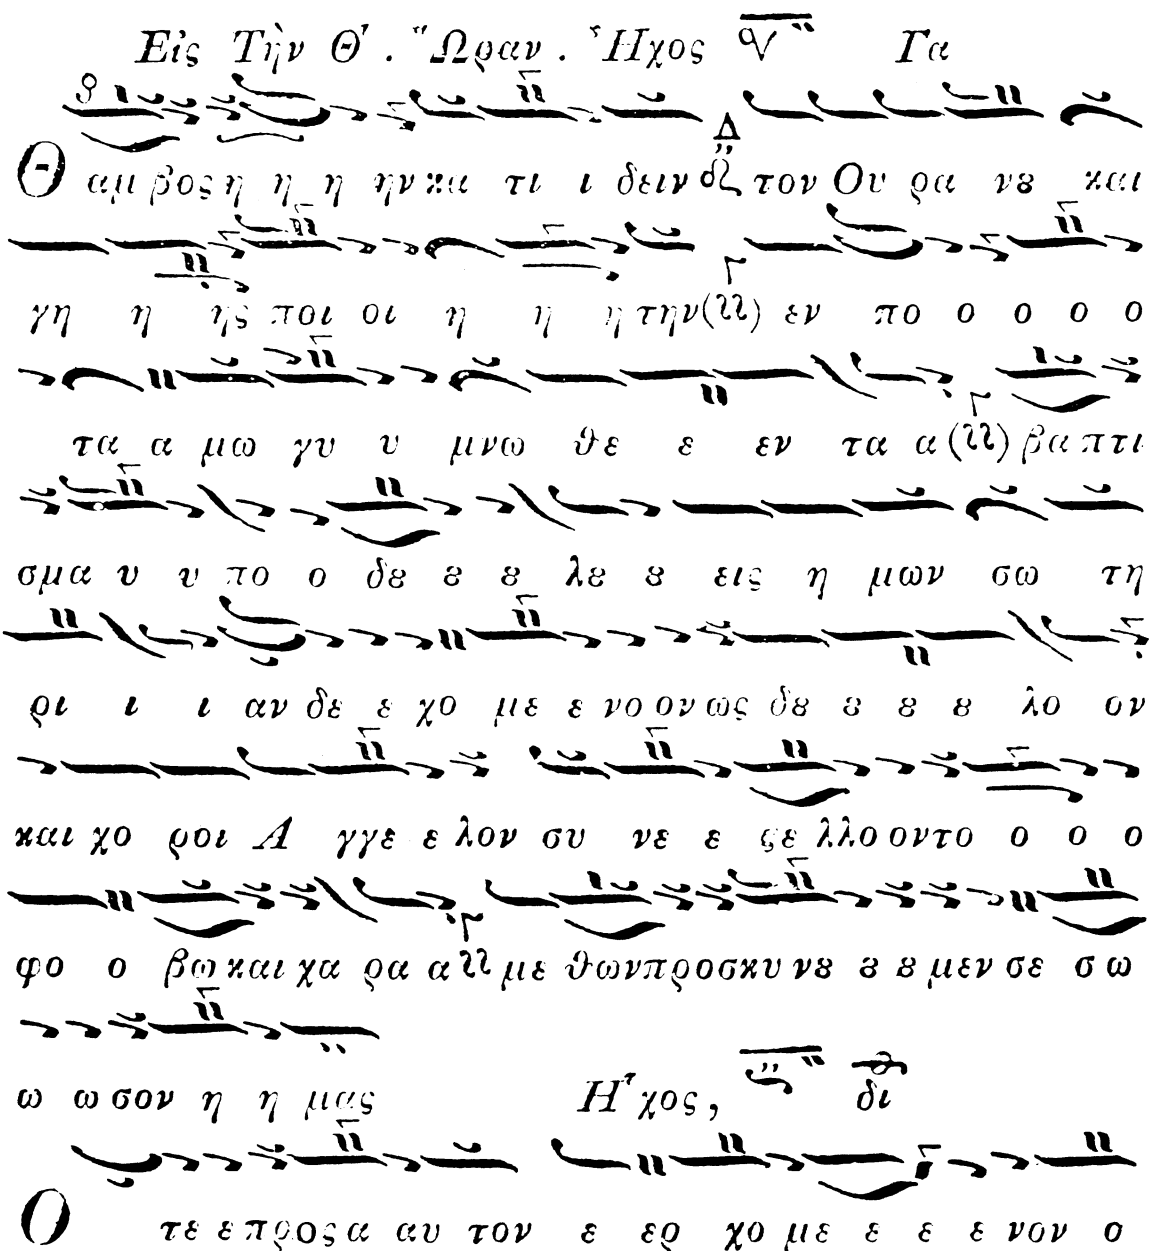 Εἰς Τὴν Θ'. Ὥραν. Ἦχος Γα
Θαμβος η η η ην κα τι ι δειν τον Ου ρα νȣ και
γη η ης ποι οι η η η την εν πο ο ο ο ο
τα α μω γυ υ μνω θε ε εν τα α βα πτι
σμα υ υ πο ο δȣ ȣ ȣ λȣ ȣ εις η μων σω τη
ρι ι ι αν δε ε χο με ε νο ον ως δȣ ȣ ȣ ȣ λο ον
και χο ροι Α γγε ε λον συ νε ε ϛε λλο οντο ο ο ο
φο ο βω και χα ρα α με θων προσκυ νȣ ȣ ȣ μεν σε σω
ω ω σον η η μας Ἦχος, δι
Ο τε ε προς α αυ τον ε ερ χο με ε ε ε νον ο